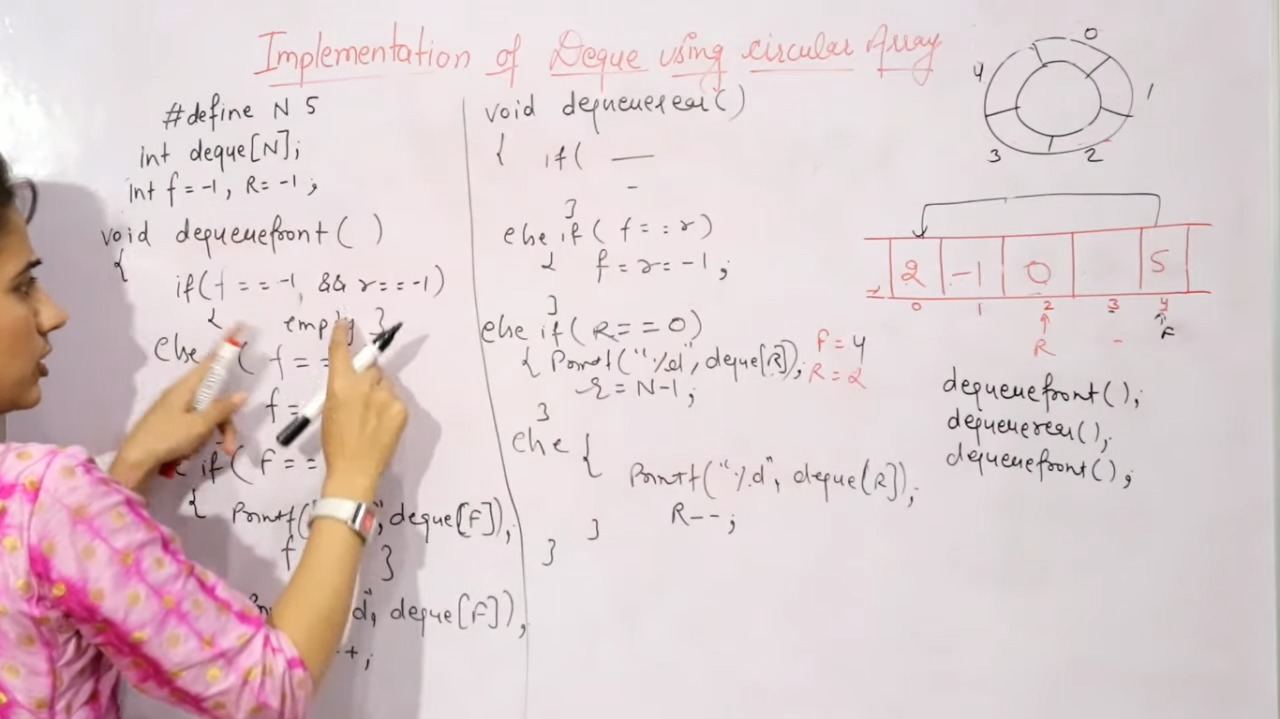 Implementation of Deque using circular Array
#define N 5
int deque[N];
int f = -1, R = -1;
void dequeuefront ( )
{
if(f == -1 && r == -1)
{ empty }
Else ( f = =
f =
if ( F = =
{ Printf( ", deque[F]);
f }
d", deque[F]),
+;
void dequeuerear( )
{ if( —
-
}
else if ( f = = r)
{ f = r = -1;
}
else if ( R = = 0)
{ Printf("%d", deque[R]);
r = N-1;
}
else {
Printf("%d", deque(R]);
R--;
}
}
0
4
1
3
2
2 -1 0 5
0 1 2 3 4
R - F
F = 4
R = 2
dequeuefront();
dequeuerear();
dequeuefront();